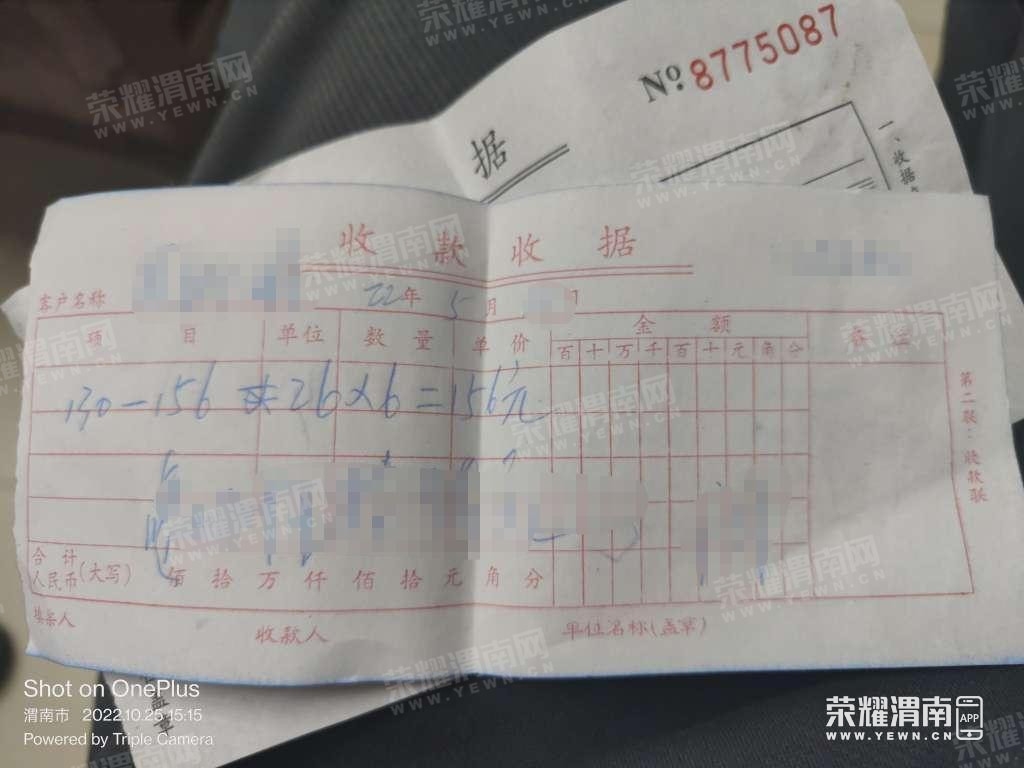 № 8775087
据
一、收据
收款收据
客户名称 22年 5月
项目 单位 数量 单价 金额
百 十 万 千 百 十 元 角 分
130-156 共26×6=156元
第二联：收款联
合计
人民币(大写) 佰 拾 万 仟 佰 拾 元 角 分
填条人 收款人 单位名称(盖章)
Shot on OnePlus
渭南市 2022.10.25 15:15
Powered by Triple Camera
荣耀渭南网 APP
WWW.YEWN.CN